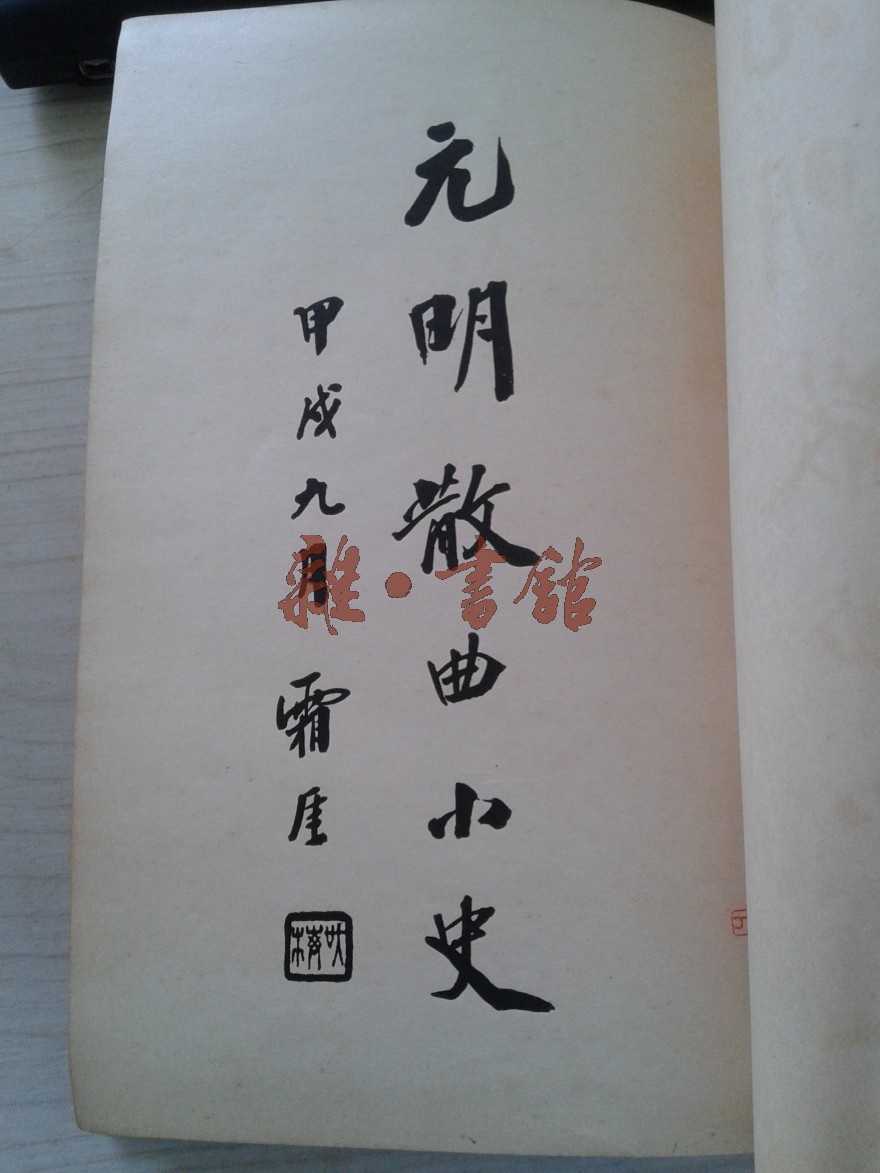 元明散曲小史
甲戌九月 霜厓
吴梅
雜·書館